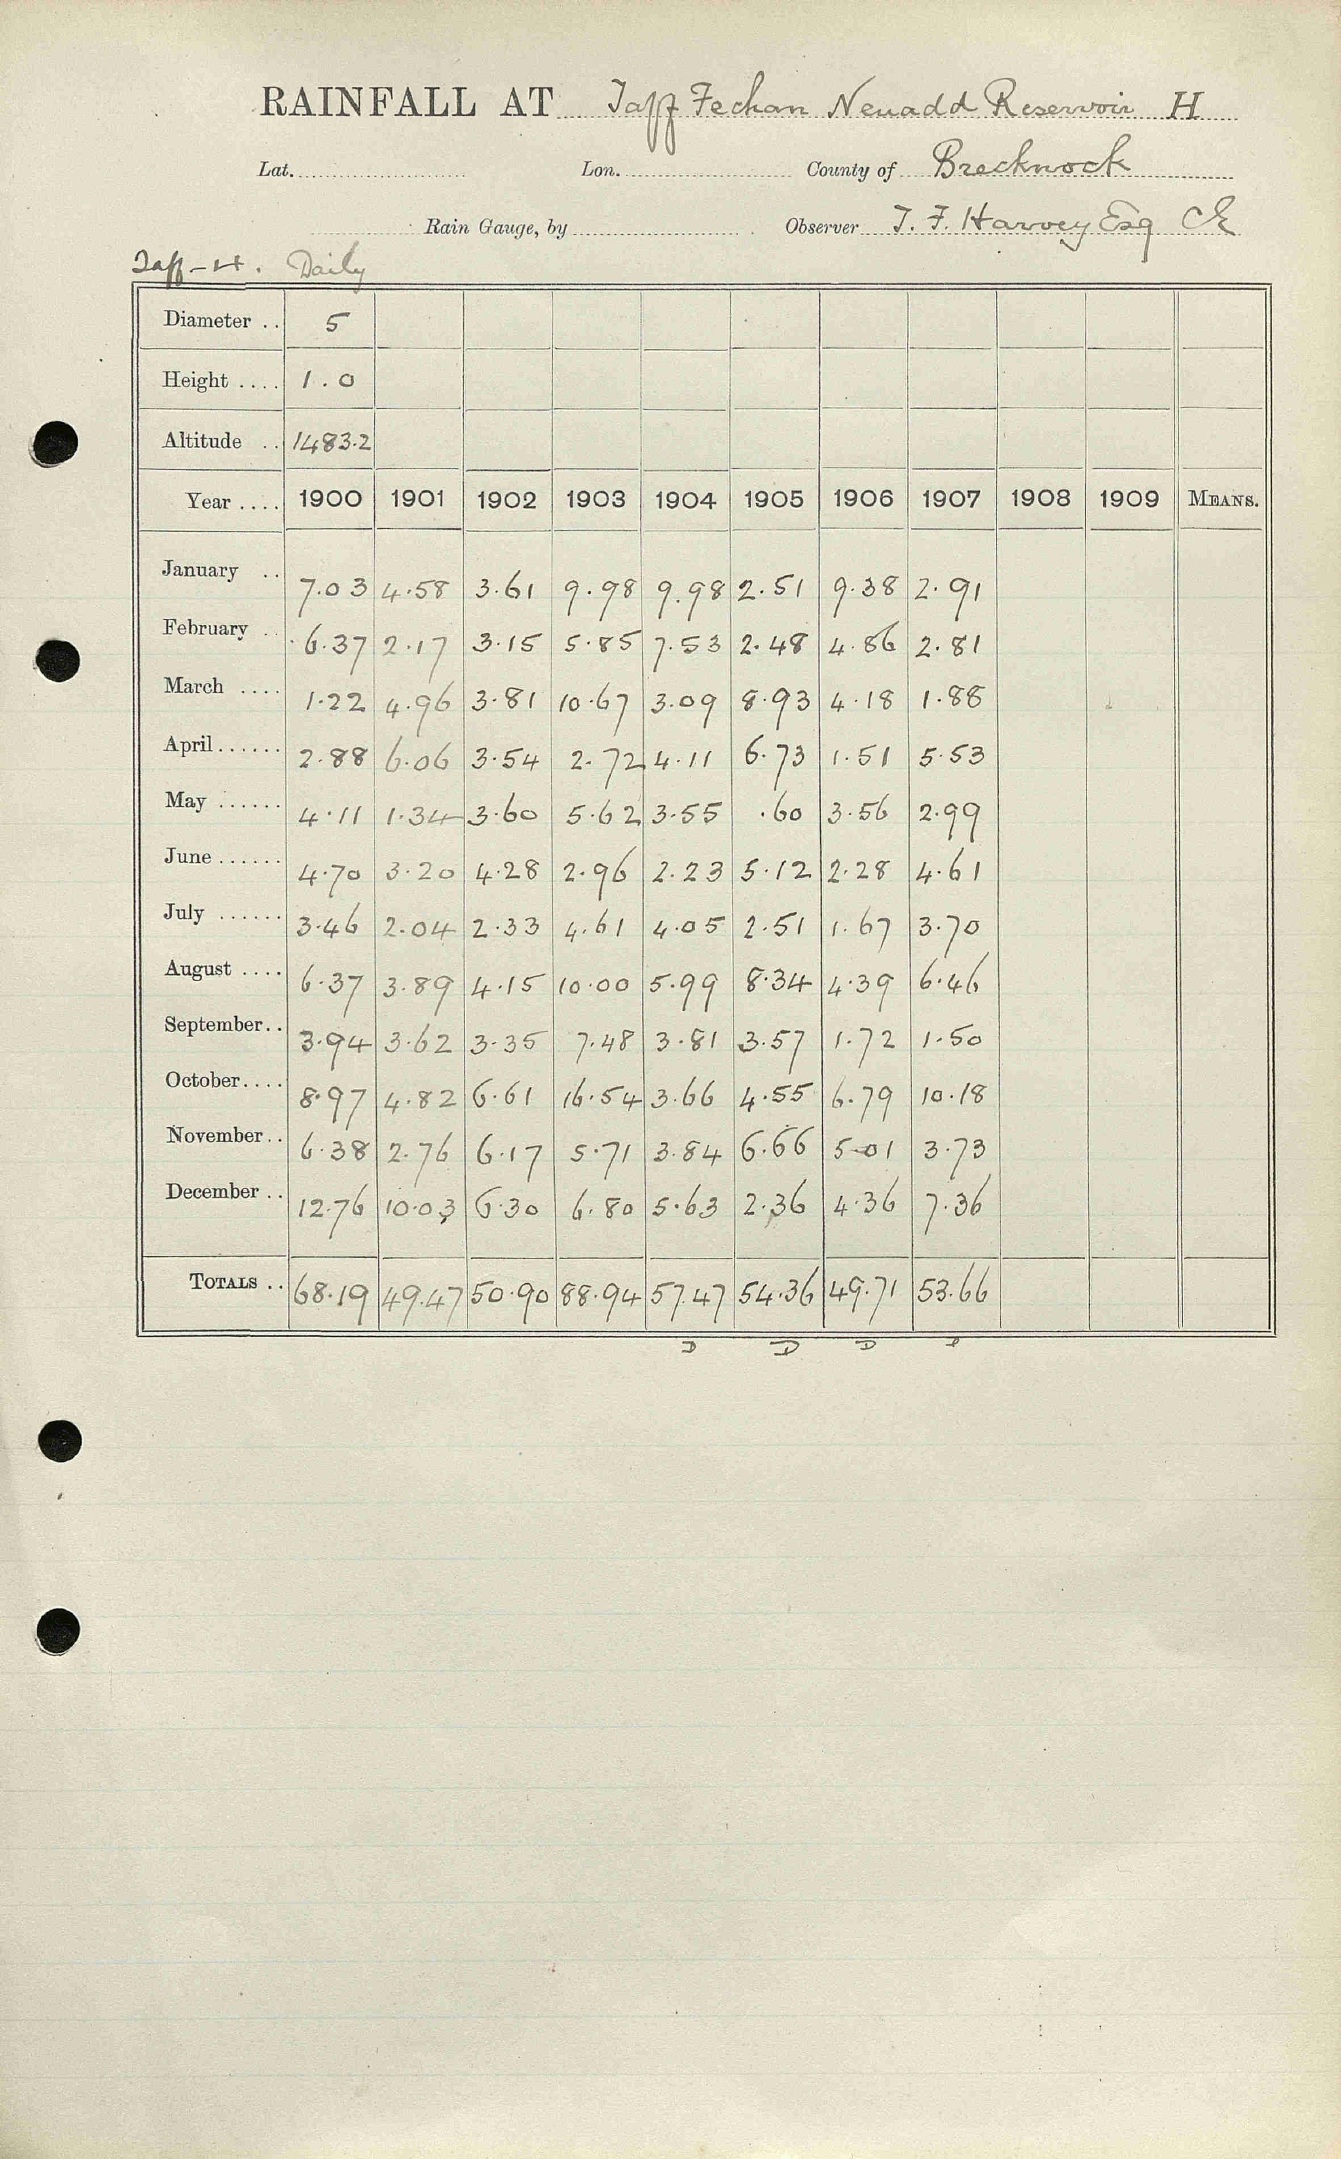 RAINFALL AT Taff Fechan Neuadd Reservoir H
Lat. Lon. County of Brecknock
Rain Gauge, by Observer T. F. Harvey Esq CE
Taff-H. Daily
Diameter .. 5
Height .... 1.0
Altitude .. 1483.2
Year .... 1900 1901 1902 1903 1904 1905 1906 1907 1908 1909 MEANS.
January .. 7.03 4.58 3.61 9.98 9.98 2.51 9.38 2.91
February .. 6.37 2.17 3.15 5.85 7.53 2.48 4.86 2.81
March .... 1.22 4.96 3.81 10.67 3.09 8.93 4.18 1.88
April ...... 2.88 6.06 3.54 2.72 4.11 6.73 1.51 5.53
May ...... 4.11 1.34 3.60 5.62 3.55 .60 3.56 2.99
June ...... 4.70 3.20 4.28 2.96 2.23 5.12 2.28 4.61
July ...... 3.46 2.04 2.33 4.61 4.05 2.51 1.67 3.70
August .... 6.37 3.89 4.15 10.00 5.99 8.34 4.39 6.46
September.. 3.94 3.62 3.35 7.48 3.81 3.57 1.72 1.50
October.... 8.97 4.82 6.61 16.54 3.66 4.55 6.79 10.18
November.. 6.38 2.76 6.17 5.71 3.84 6.66 5.01 3.73
December .. 12.76 10.03 6.30 6.80 5.63 2.36 4.36 7.36
TOTALS .. 68.19 49.47 50.90 88.94 57.47 54.36 49.71 53.66
D D D D